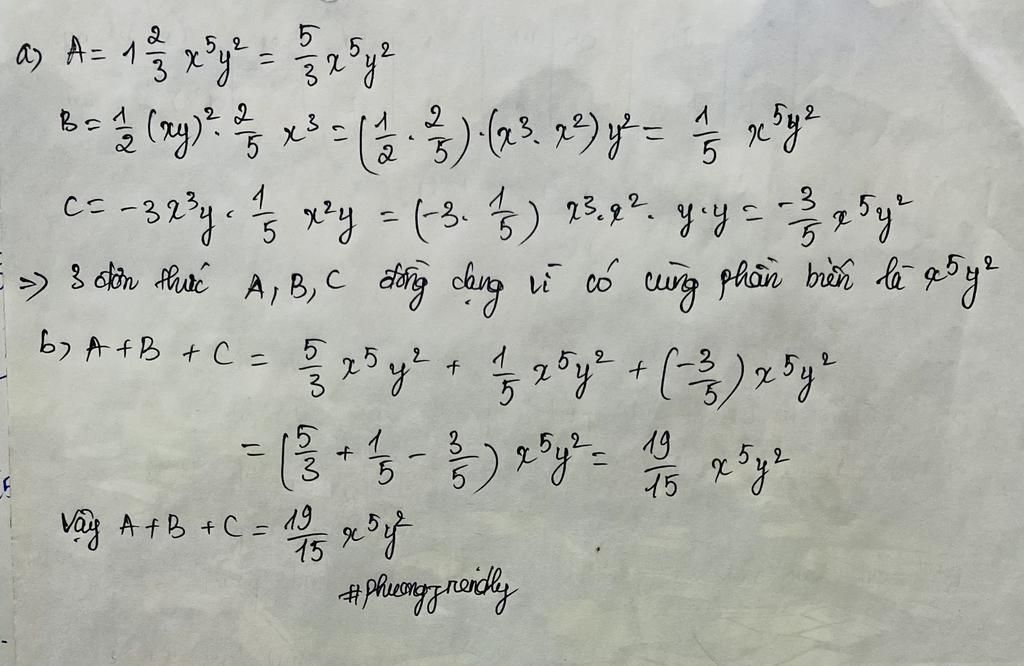 a) A = 1 2/3 x⁵y² = 5/3 x⁵y²
B = 1/2 (xy)² · 2/5 x³ = (1/2 · 2/5) · (x³ · x²) y² = 1/5 x⁵y²
C = -3x³y · 1/5 x²y = (-3 · 1/5) x³ · x² · y · y = -3/5 x⁵y²
=> 3 đơn thức A, B, C đồng dạng vì có cùng phần biến là x⁵y²
b) A + B + C = 5/3 x⁵y² + 1/5 x⁵y² + (-3/5) x⁵y²
= (5/3 + 1/5 - 3/5) x⁵y² = 19/15 x⁵y²
Vậy A + B + C = 19/15 x⁵y²